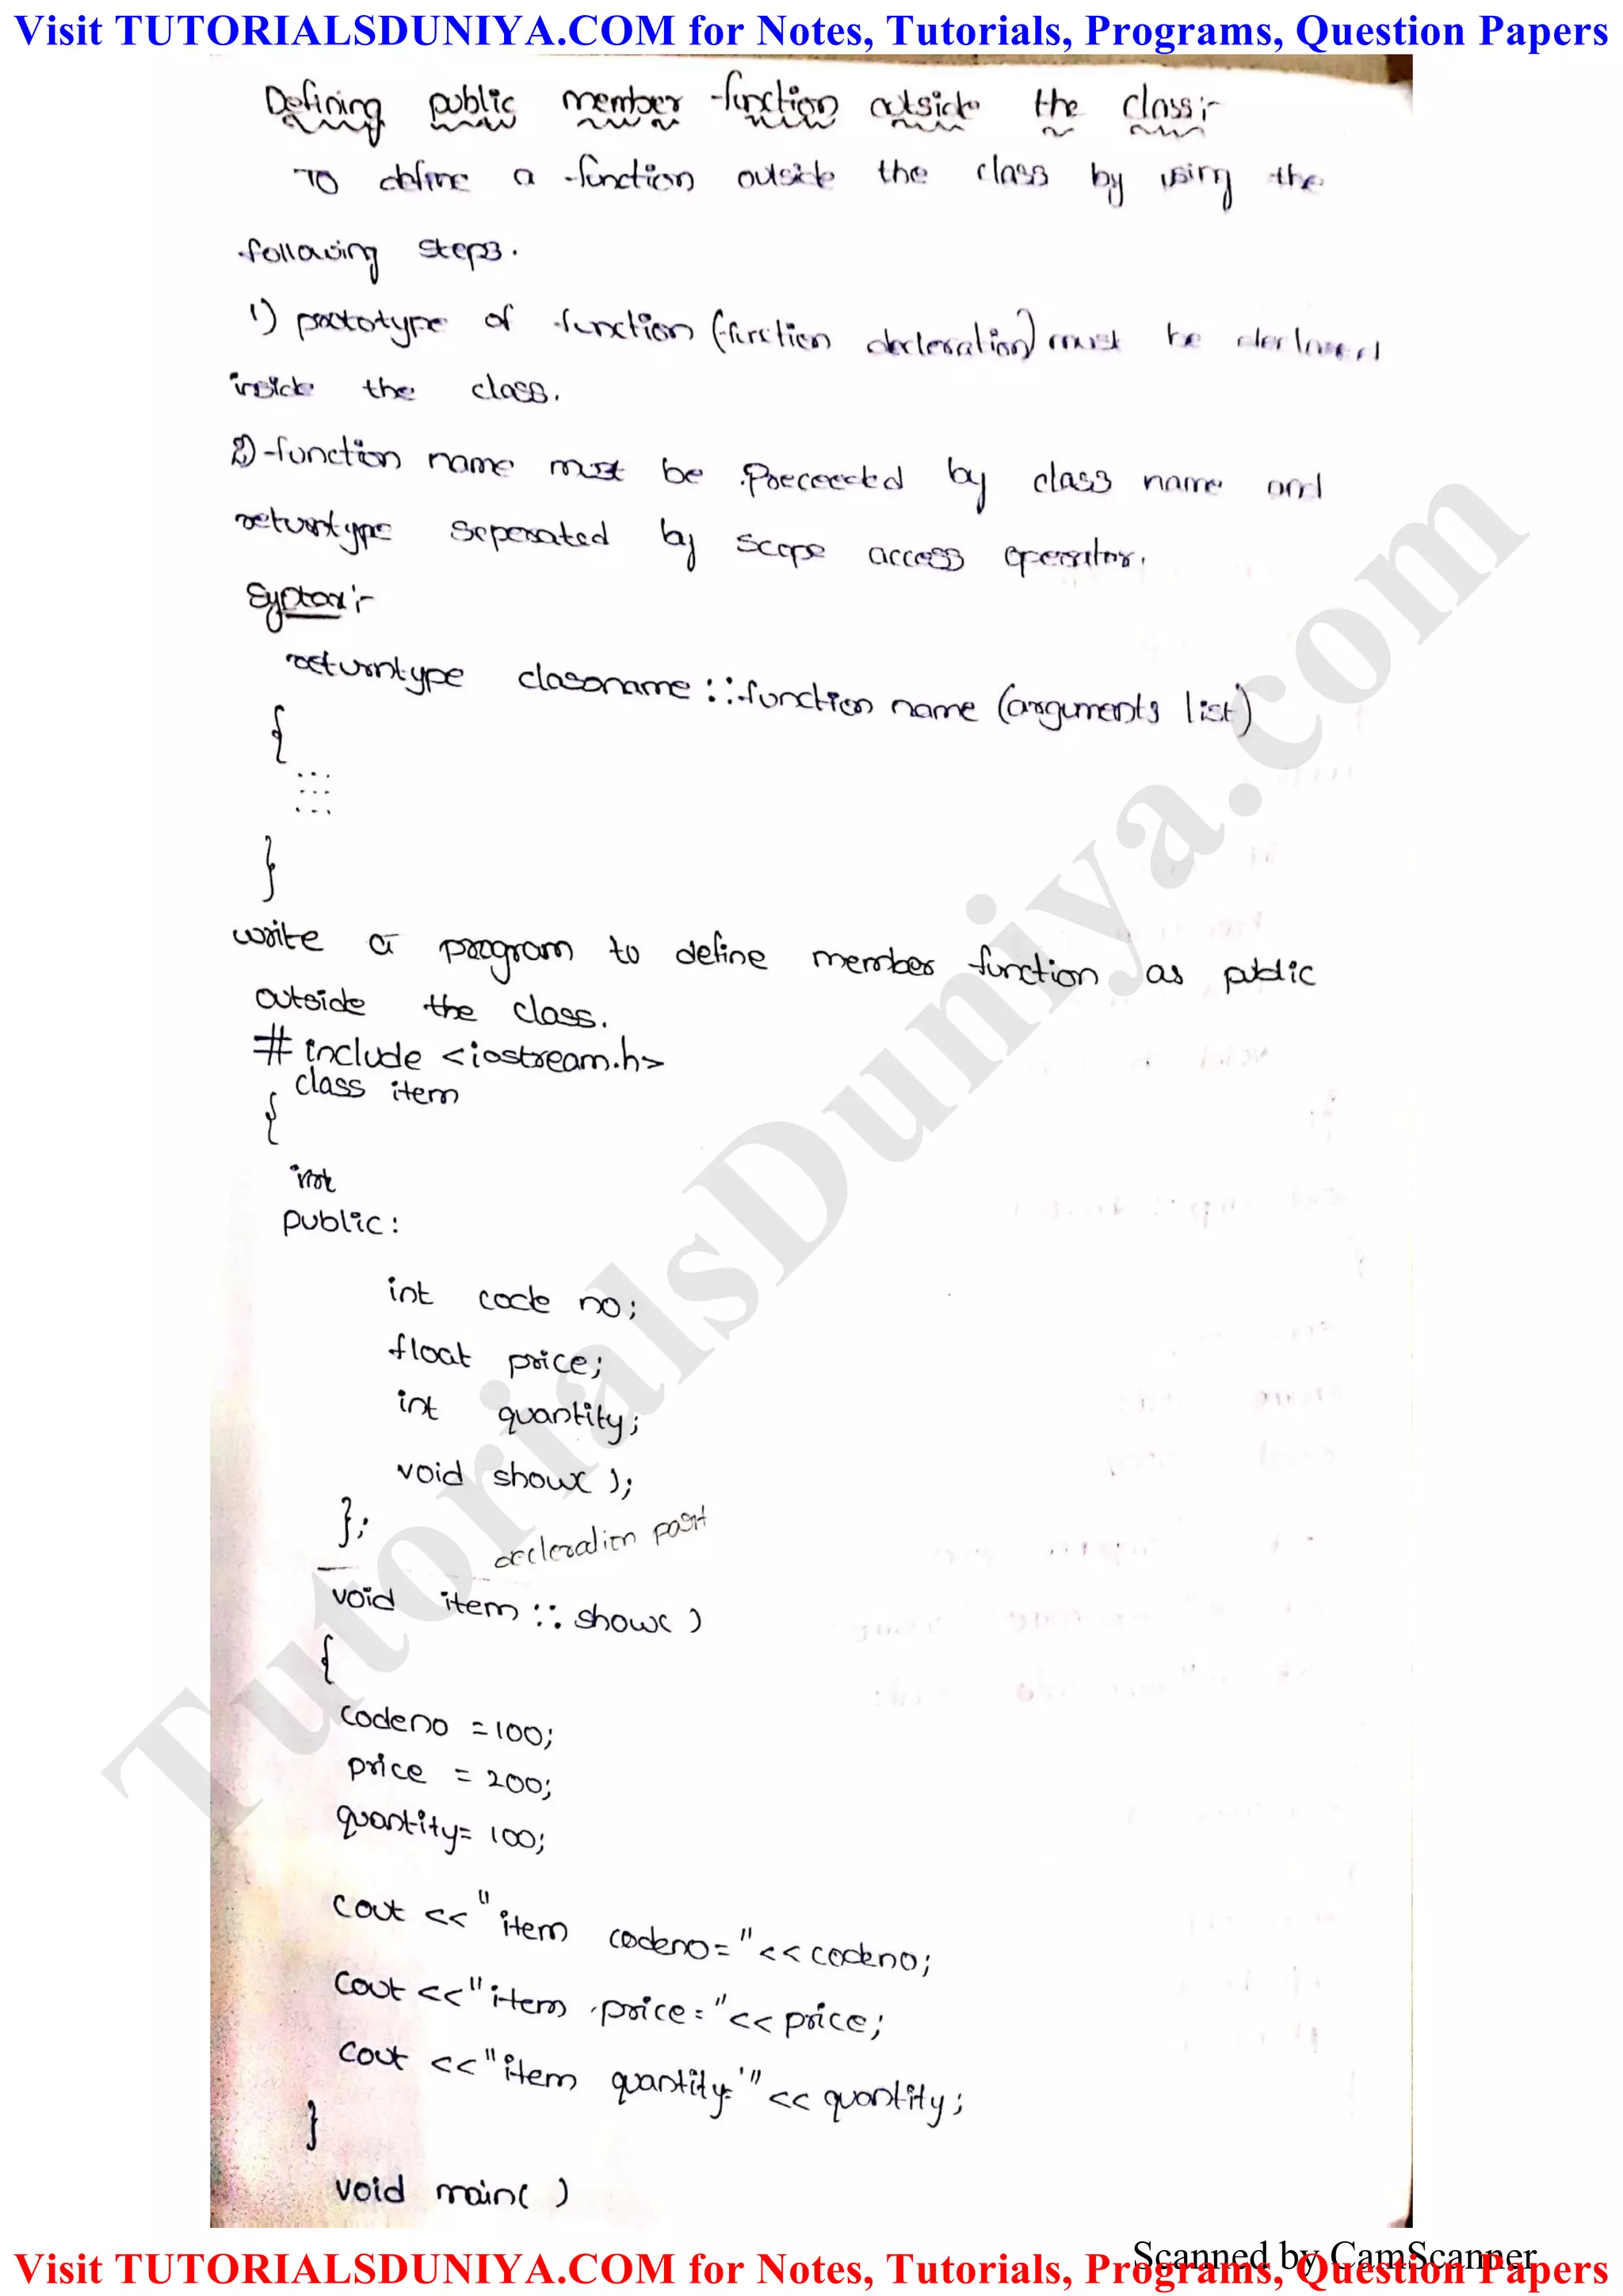 Visit TUTORIALSDUNIYA.COM for Notes, Tutorials, Programs, Question Papers
Defining public member function outside the class:-
To define a function outside the class by using the
following steps.
1) prototype of function (function decleration) must be declared
inside the class.
2) function name must be Preceeded by class name and
returntype seperated by scope access operator.
Syntax:-
returntype classname :: function name (arguments list)
{
...
...
...
}
write a program to define member function as public
outside the class.
# include <iostream.h>
class item
{
int
public:
int code no;
float price;
int quantity;
void show( );
};
decleration part
void item :: show( )
{
codeno = 100;
price = 200;
quantity= 100;
cout << "item codeno= "<< codeno;
cout << "item price= "<< price;
cout << "item quantity= "<< quantity;
}
void main( )
TutorialsDuniya.com
Scanned by CamScanner
Visit TUTORIALSDUNIYA.COM for Notes, Tutorials, Programs, Question Papers